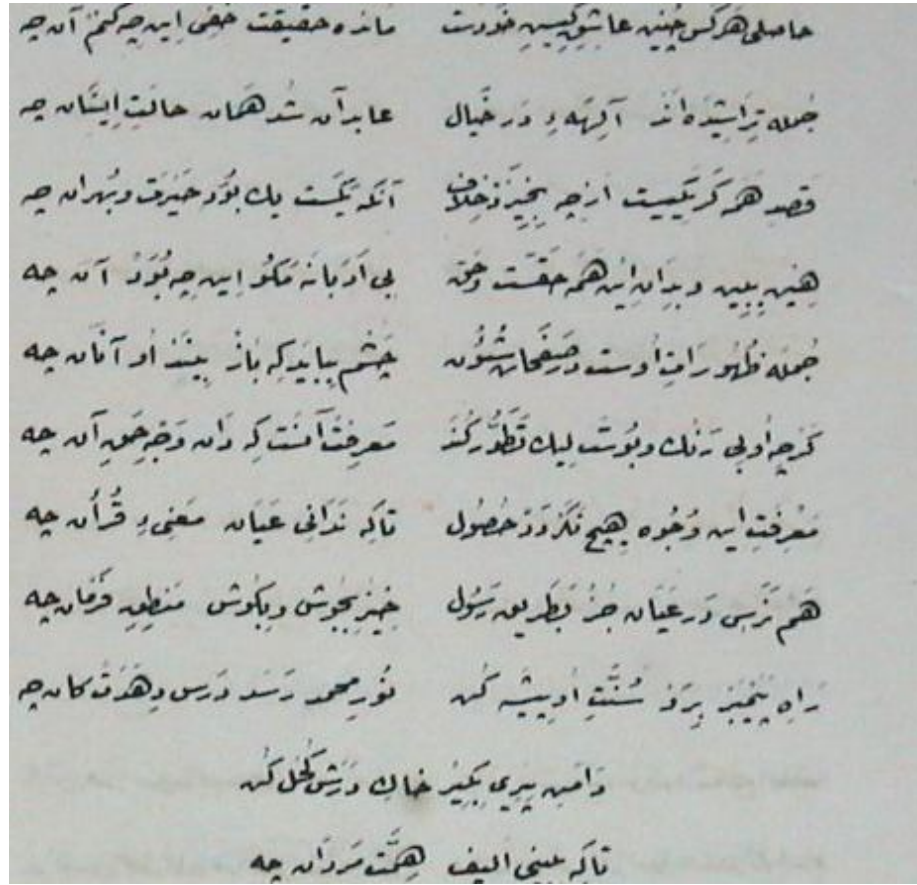 حاصلی هر کس چنین عاشق کیس خودست مانده حقیقت خفی این چه کنم آن چه
جمله تراشیده‌اند آلهه‌ء در خیال عابد آن شد همان حالت ایشان چه
قصد همه گر یکیست از چه بخیزد خلاف آنکه یکست یک بود خیرت و بهران چه
هین ببین و بدان این همه حقست و حق بی ادبانه مگو این چه بود آن چه
جمله ظهورات اوست در صفحات شئون چشم بباید که باز بیند او آنان چه
گرچه او بی رنگ و بوست لیک تطور کند معرفت آنست که دان وجه حق آن چه
معرفت این وجوه هیچ نگردد حصول تا که ندانی عیان معنیء قرأن چه
هم نرسی در عیان جز بطریق رسول خیز بجوش و بکوش منطق فرمان چه
راه پیغمبر برو سنت او پیشه کن نور محمد رسد درس دهدت کان چه
دامن پیری بگیر خاک درش کحل کن
تا که ببینی الیف همت مردان چه